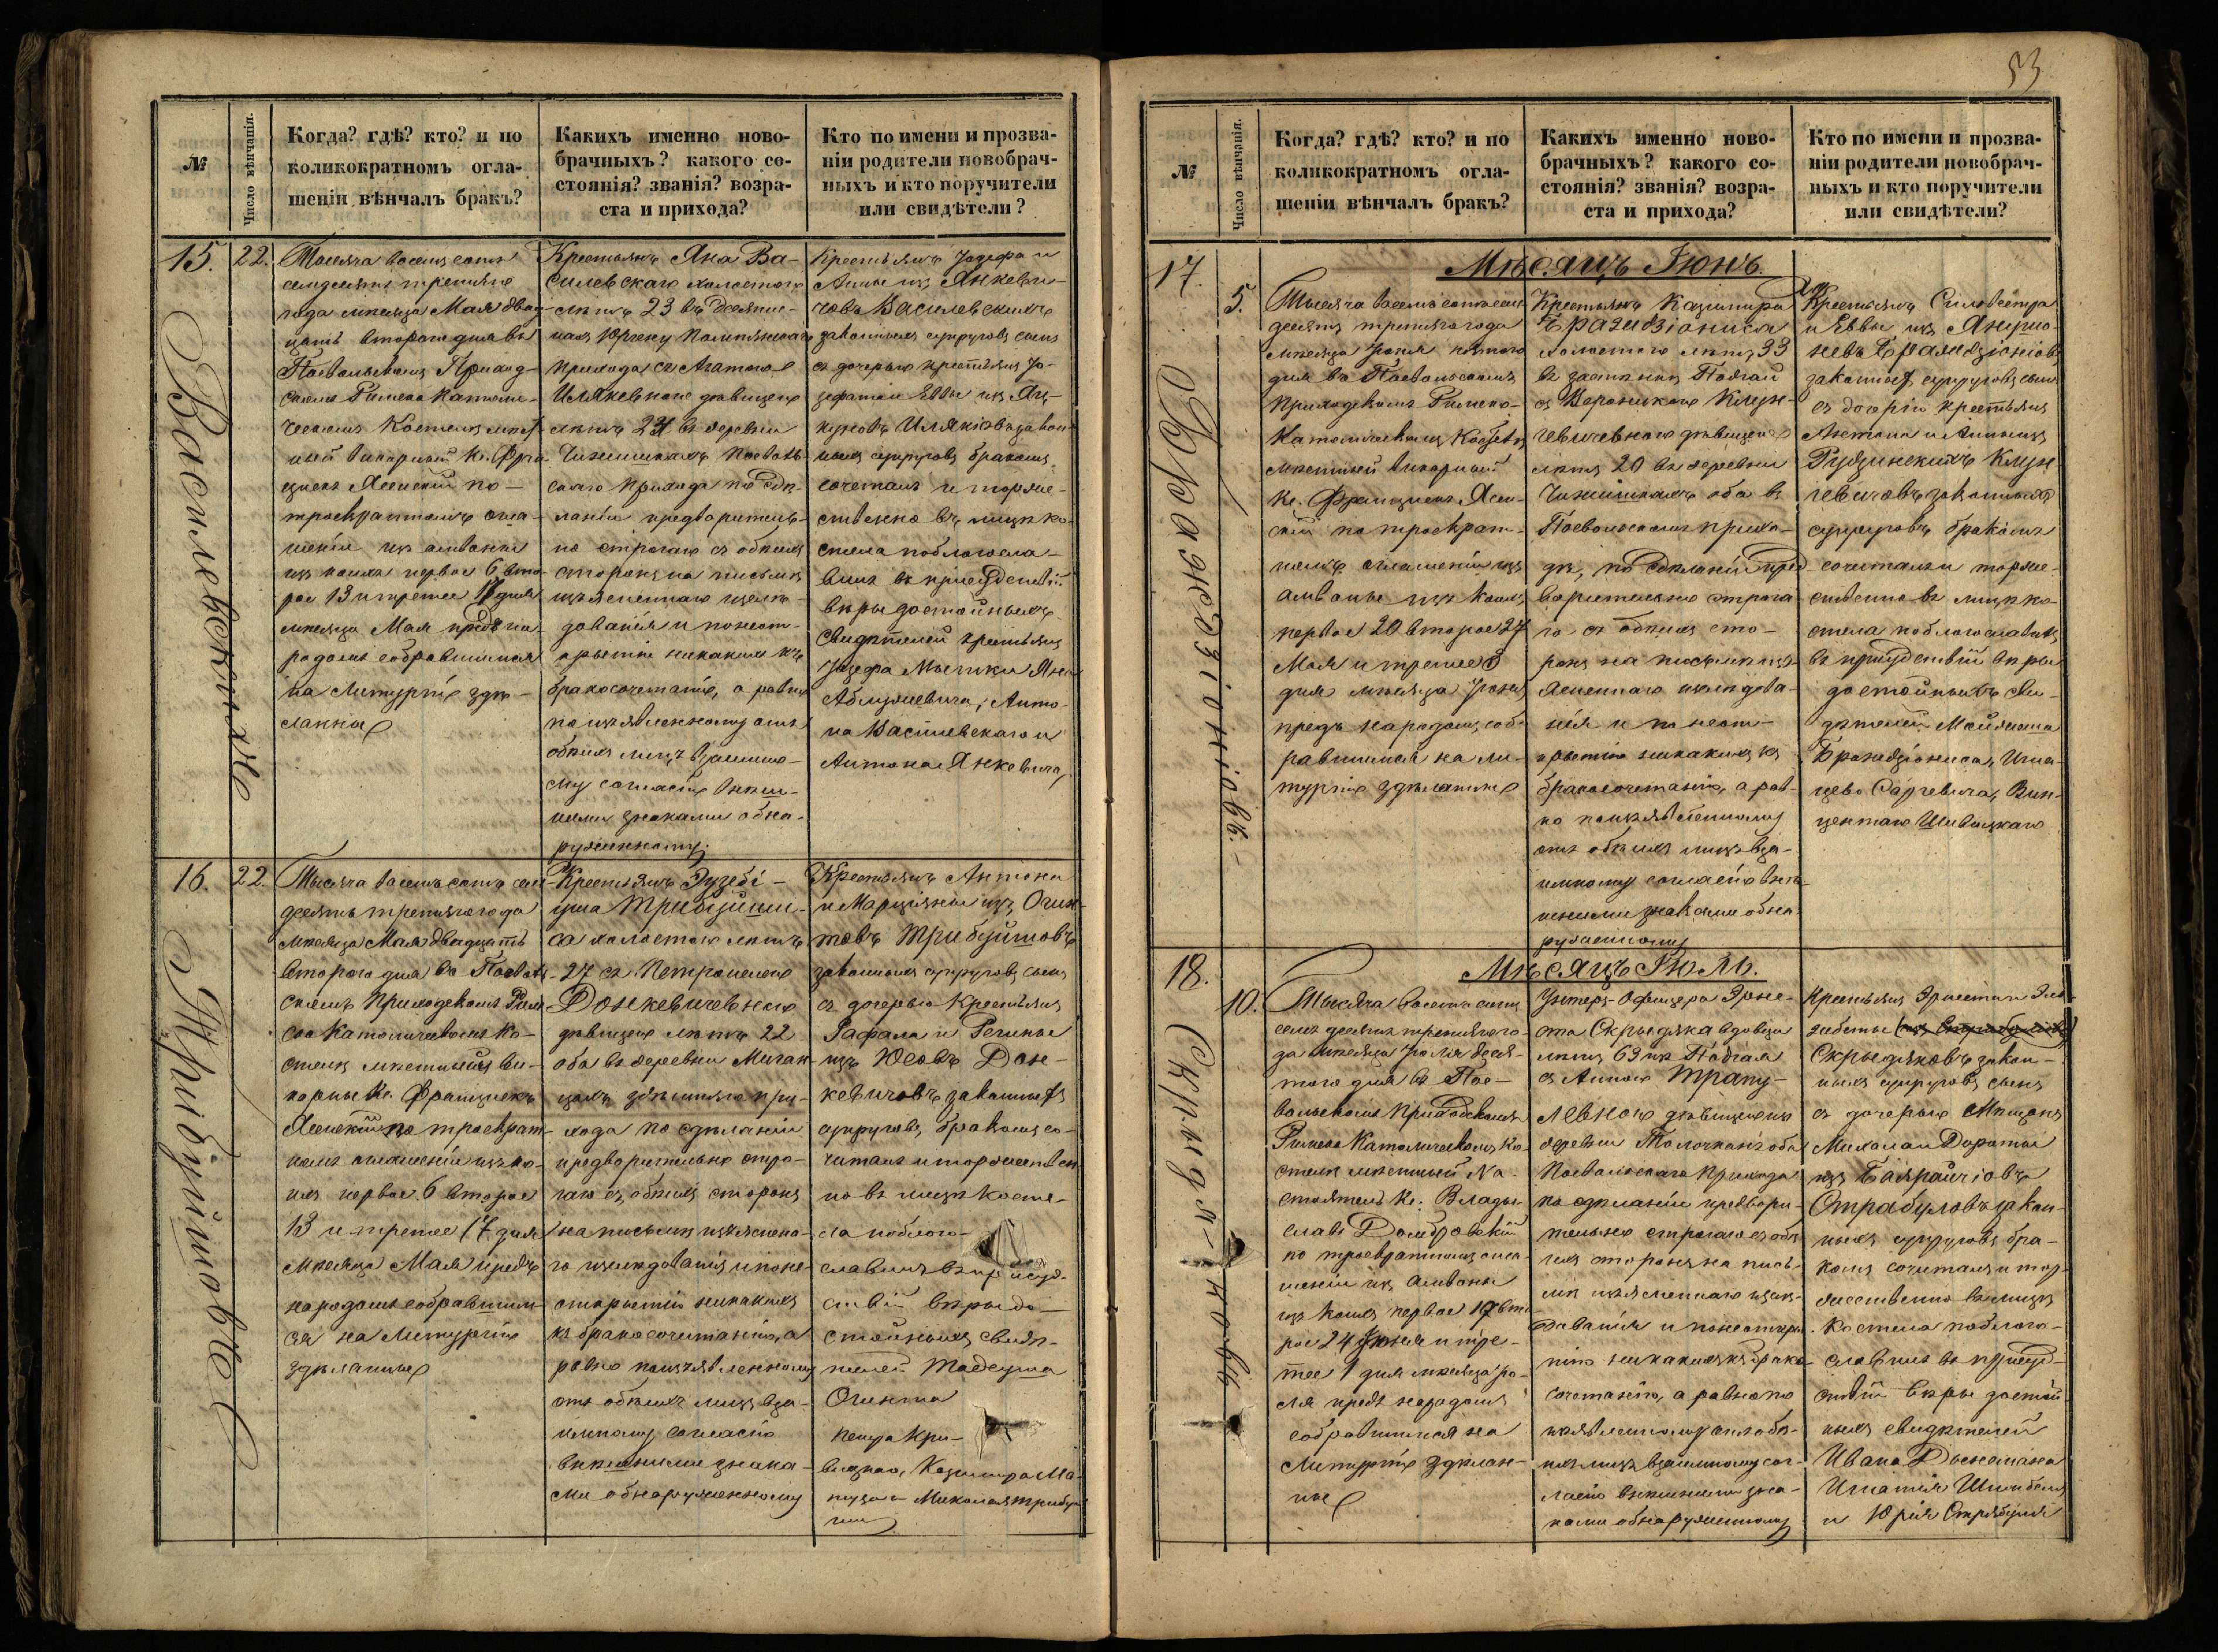 №
Число вѣнчанія.
Когда? гдѣ? кто? и по
коликократномъ огла-
шеніи вѣнчалъ бракъ?
Какихъ именно ново-
брачныхъ? какого со-
стоянія? званія? возра-
ста и прихода?
Кто по имени и прозва-
ніи родители новобрач-
ныхъ и кто поручители
или свидѣтели?
15.
22.
Василевскихъ
Тысяча восемь сотъ
семдесятъ третьяго
года мѣсяца Мая двад-
цать втораго дня въ
Поевольскомъ Приход-
скомъ Римско Католи-
ческомъ Костелѣ мѣст-
ный викарный Кс. Фран-
цишекъ Ясенскій по
троекратномъ огла-
шеніи изъ амвоны
изъ коихъ первое 6 вто-
рое 13 и третее 17 дня
мѣсяца Мая предъ на-
родомъ собравшимся
на Литургію здѣ-
ланны
Крестьянъ Яна Ва-
силевскаго холостого
лѣтъ 23 въ
прихода съ Агатою
Иляневною дѣвицею
лѣтъ 21 въ деревни
Чижишкахъ Поеволь-
скаго прихода по здѣ-
ланіи предваритель-
но строгаго съ обѣихъ
сторонъ на письмѣ
изъясненнаго изслѣ-
дованія и неот-
крытіи никакихъ къ
бракосочетанію, а равно
по изъявленному отъ
обѣихъ лицъ взаимно-
му согласію внѣш-
ними знаками обна-
руженному.
Крестьянъ Іозефа и
Анны изъ Янкеви-
човъ Василевскихъ
законныхъ супруговъ сынъ
съ дочерью крестьянъ Іо-
зефата и Еввы изъ Яц-
куновъ Илякіовъ закон-
ныхъ супруговъ бракомъ
сочеталъ и торже-
ственно въ лицѣ ко-
стела поблагосла-
вилъ въ присудствіи
вѣры достойныхъ
свидѣтелей крестьянъ
Іозефа Мышки Яна
Аблушевича, Анто-
на Василевскаго и
Антона Янкевича
16.
22.
Трибуйшовъ
Тысяча восемь сотъ сем-
десятъ третьяго года
мѣсяца Мая двадцать
втораго дня въ Поеволь-
скомъ Приходскомъ Рим-
ско Католическомъ Ко-
стелѣ мѣстный ви-
карный Кс. Францишекъ
Ясенскій по троекрат-
номъ оглашеніи изъ ко-
ихъ первое 6 второе
13 и третее 17 дня
мѣсяца Мая предъ
народомъ собравшим-
ся на Литургію
здѣланны
Крестьянъ Эузебі-
уша Трибуйши-
са холостого лѣтъ
27 съ Петронелею
Донкевичевною
дѣвицею лѣтъ 22
оба въ деревни
здѣшняго при-
хода по сдѣланіи
предварительно стро-
гаго съ обѣихъ сторонъ
на письмѣ изъяснена-
го изслѣдованія и поне-
открытію никакихъ
къ бракосочетанію, а
равно по изъявленному
отъ обѣихъ лицъ вза-
имному согласію
внѣшними знака-
ми обнаруженному
Крестьянъ Антона
и Марціянны изъ Огин-
товъ Трибуйшовъ
законныхъ супруговъ сынъ
съ дочерью Крестьянъ
Рафала и Регины
изъ Юсовъ Дон-
кевичовъ законныхъ
супруговъ, бракомъ со-
четалъ и торжествен-
но въ лицѣ Косте-
ла поблаго-
славилъ въ присуд-
ствіи вѣры до-
стойныхъ свидѣ-
телей Тадеуша
Огинта
Петра Кри-
вицкаго, Казимира Ма-
и Миколая Трибуй-
53
№
Число вѣнчанія.
Когда? гдѣ? кто? и по
коликократномъ огла-
шеніи вѣнчалъ бракъ?
Какихъ именно ново-
брачныхъ? какого со-
стоянія? званія? возра-
ста и прихода?
Кто по имени и прозва-
ніи родители новобрач-
ныхъ и кто поручители
или свидѣтели?
17.
5.
Мѣсяцъ Іюнь.
Тысяча восемь сотъ сем-
десятъ третьяго года
мѣсяца Іюня пятого
дня въ Поевольскомъ
Приходскомъ Римско-
Католическомъ Костелѣ
мѣстный викарный
Кс. Францишекъ Ясен-
скій по троекрат-
номъ оглашеніи изъ
амвоны изъ коихъ
первое 20 второе 27
Мая и третее 3
дня мѣсяца Іюня
предъ народомъ соб-
равшимся на ли-
тургію здѣланные
Крестьянъ Казимира
Бражедзіониса
холостого лѣтъ 33
въ застенки Подгаи
съ Вероникою Клуж-
чевичевною дѣвицею
лѣтъ 20 въ деревни
Чижишкахъ оба въ
Поевольскомъ прихо-
дѣ, по сдѣланіи пред-
варительно строга-
го съ обѣихъ сто-
ронъ на письмѣ изъ-
ясненнаго изслѣдова-
нія и по неот-
крытію никакихъ къ
бракосочетанію, а рав-
но по изъявленному
отъ обѣихъ лицъ вза-
имному согласію внѣш-
ними знаками обна-
руженному
Крестьянъ Сильвестра
и Еввы изъ
Бражедзіонісовъ
законныхъ супруговъ сынъ
съ дочерію крестьянъ
Антона и Анны изъ
Рудзинскихъ Клуж-
чевичовъ законныхъ
супруговъ бракомъ
сочеталъ и торже-
ственно въ лицѣ ко-
стела поблагославилъ
въ присудствіи вѣры
достойныхъ сви-
дѣтелей
Бражедзіониса, Игна-
цего Саргевича, Вин-
центаго Шивицкаго
18.
10.
Скрыдяковъ
Мѣсяцъ Іюль.
Тысяча восемь сотъ
семъ десятъ третьяго го-
да мѣсяца Іюля деся-
того дня въ Пое-
вольскомъ Приходскомъ
Римско Католическомъ Ко-
стелѣ мѣстный На-
стоятель Кс. Влады-
славъ Домбровскій
по троекратномъ огла-
шеніи изъ амвоны
изъ коихъ первое 17 вто-
рое 24 Іюня и тре-
тее 1 дня мѣсяца Ію-
ля предъ народомъ
собравшимся на
Литургію здѣлан-
ные
Унтеръ-Офицера Эрне-
ста Скрыдяка вдовца
лѣтъ 69 изъ Подгая
съ Анною Трапу-
левною дѣвицею изъ
деревни Толочканъ оба
Поевольскаго Прихода
по сдѣланіи предвари-
тельно строгаго съ обѣ-
ихъ сторонъ на пись-
мѣ изъясненнаго изслѣ-
дованія и понеоткры-
тію никакихъ къ брако-
сочетанію, а равно по
изъявленному отъ обѣ-
ихъ лицъ взаимному сог-
ласію внѣшними зна-
ками обнаруженному
Крестьянъ Эрнеста и Эль-
збеты
Скрыдяковъ закон-
ныхъ супруговъ сынъ
съ дочерью Мѣщанъ
Михала и Дороты
изъ
закон-
ныхъ супруговъ бра-
комъ сочеталъ и тор-
жественно въ лицѣ
Костела поблаго-
славилъ въ присуд-
ствіи вѣры достой-
ныхъ свидѣтелей
Ивана
Игнатія
и Юрія